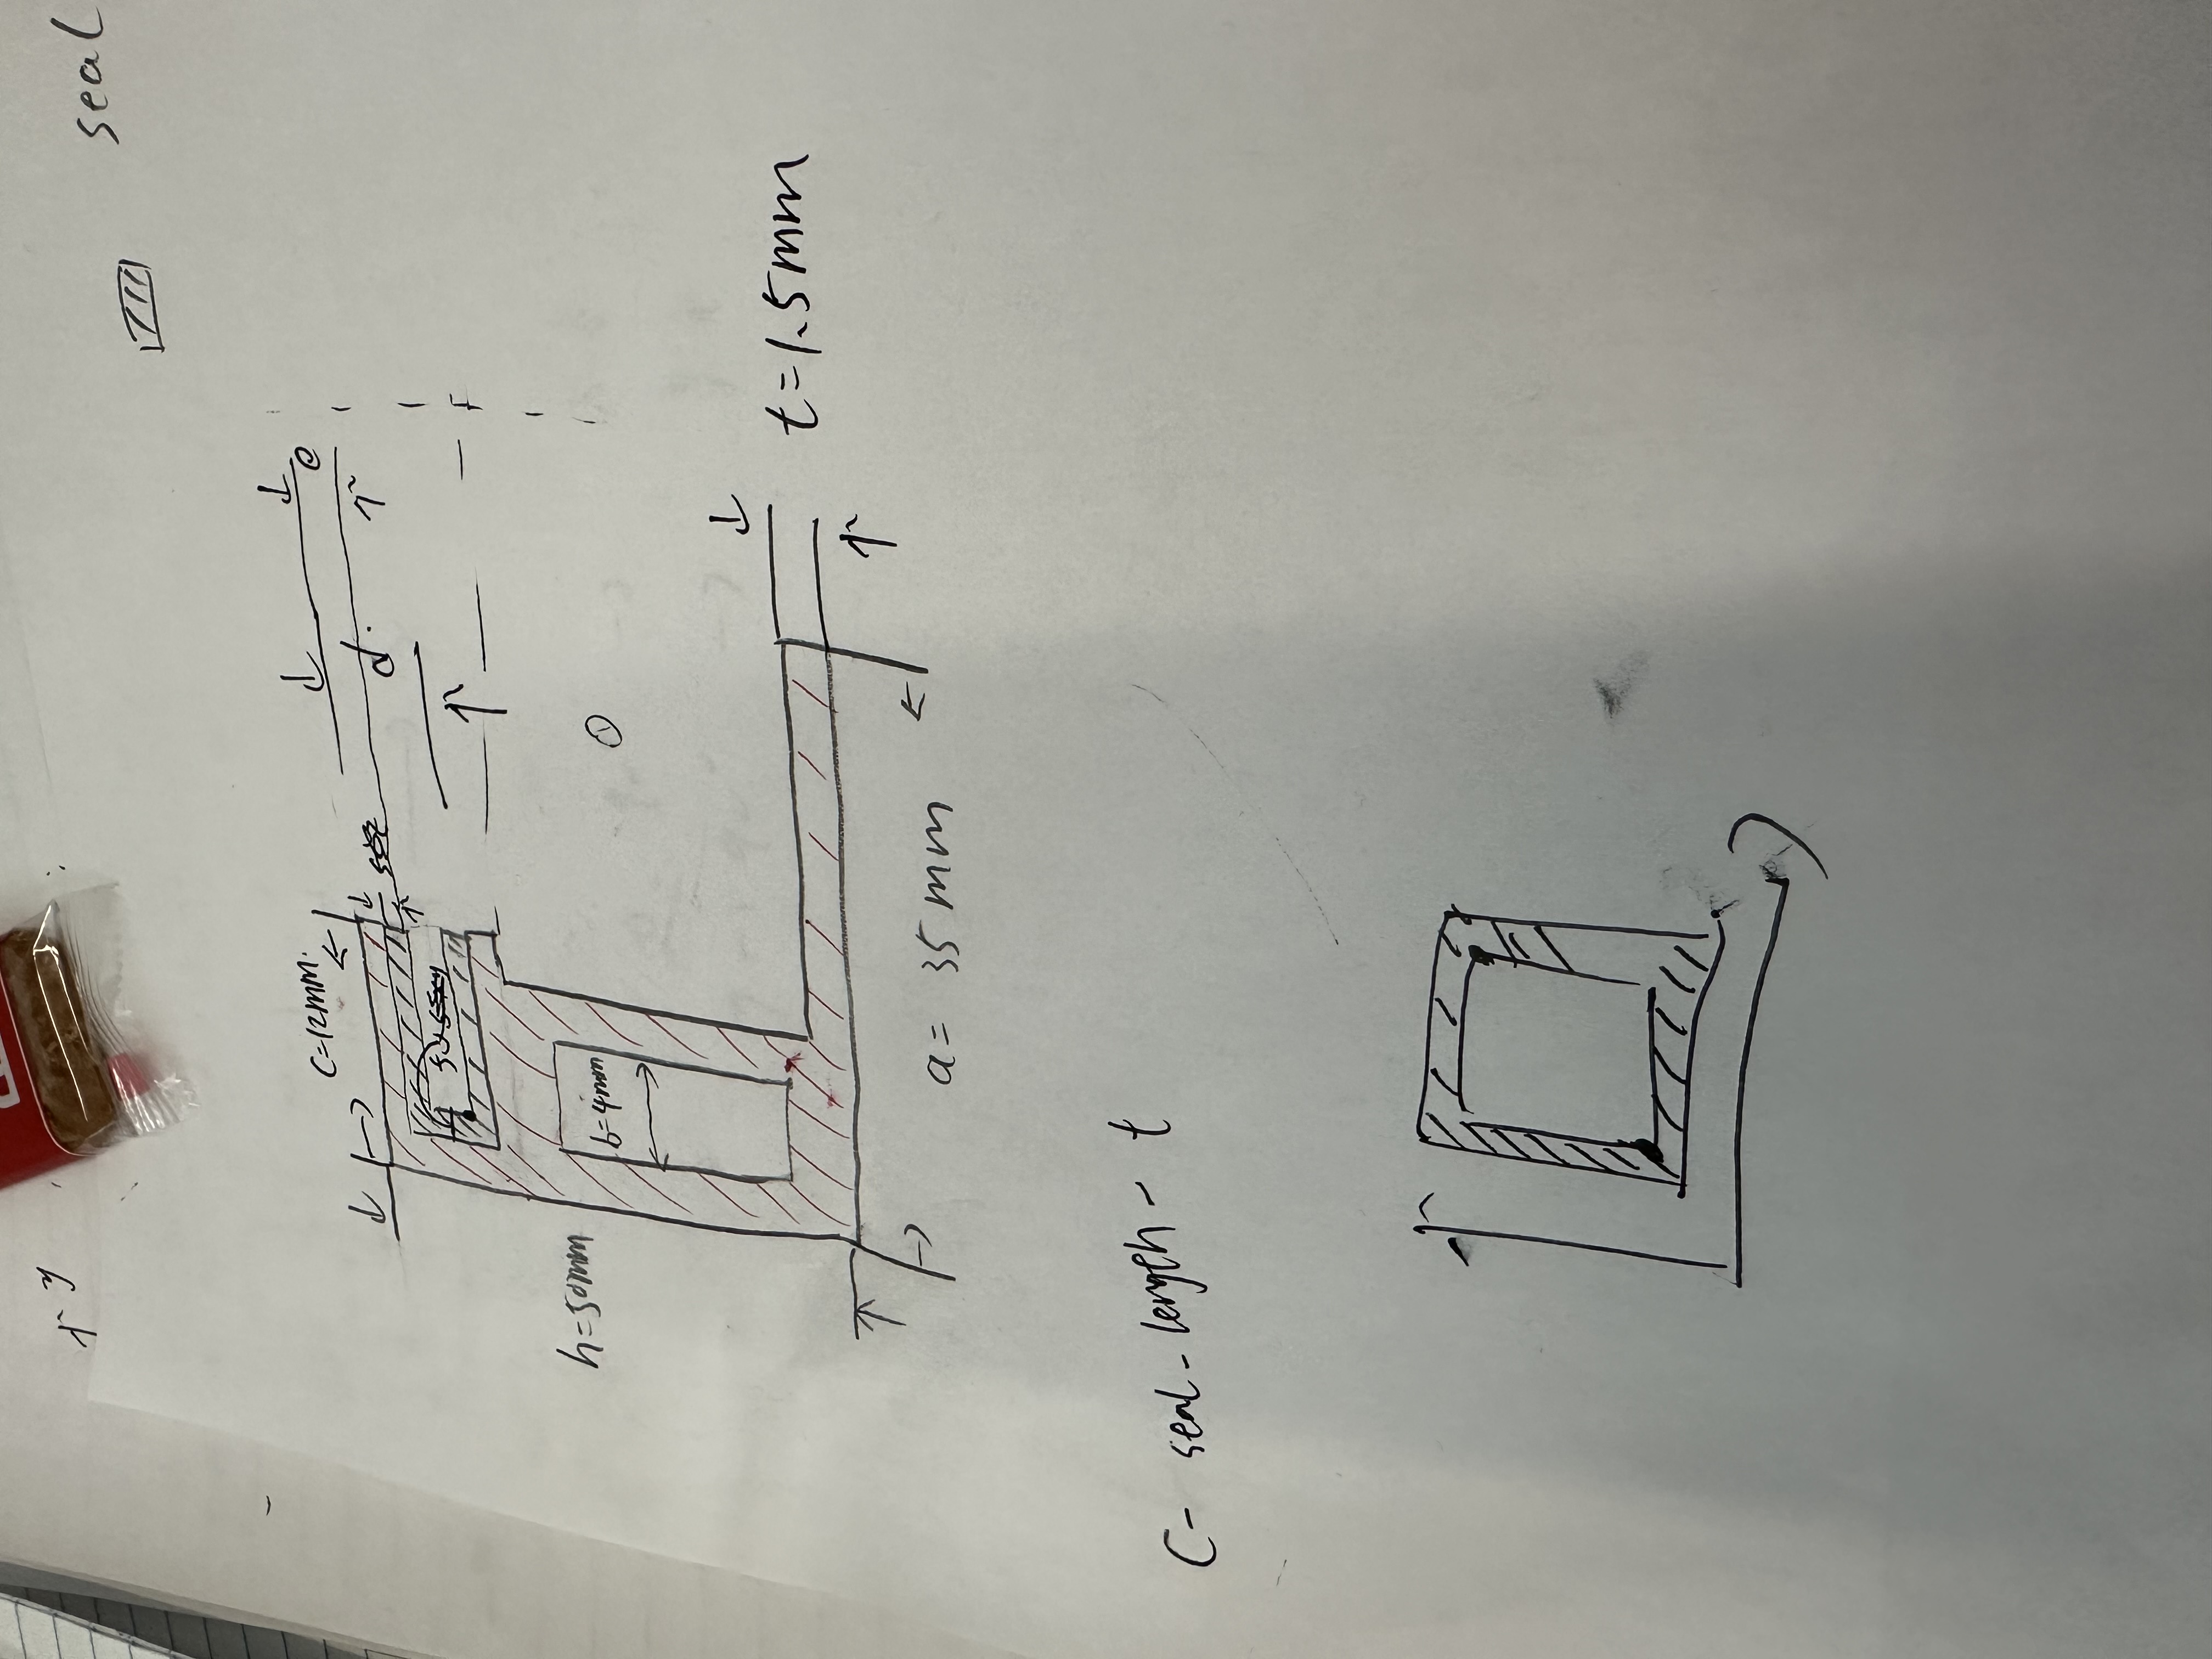 y
seal
C=12mm.
e
d.
h=50mm
b=4mm
t=1.5mm
a= 35mm
C- seal-length- t